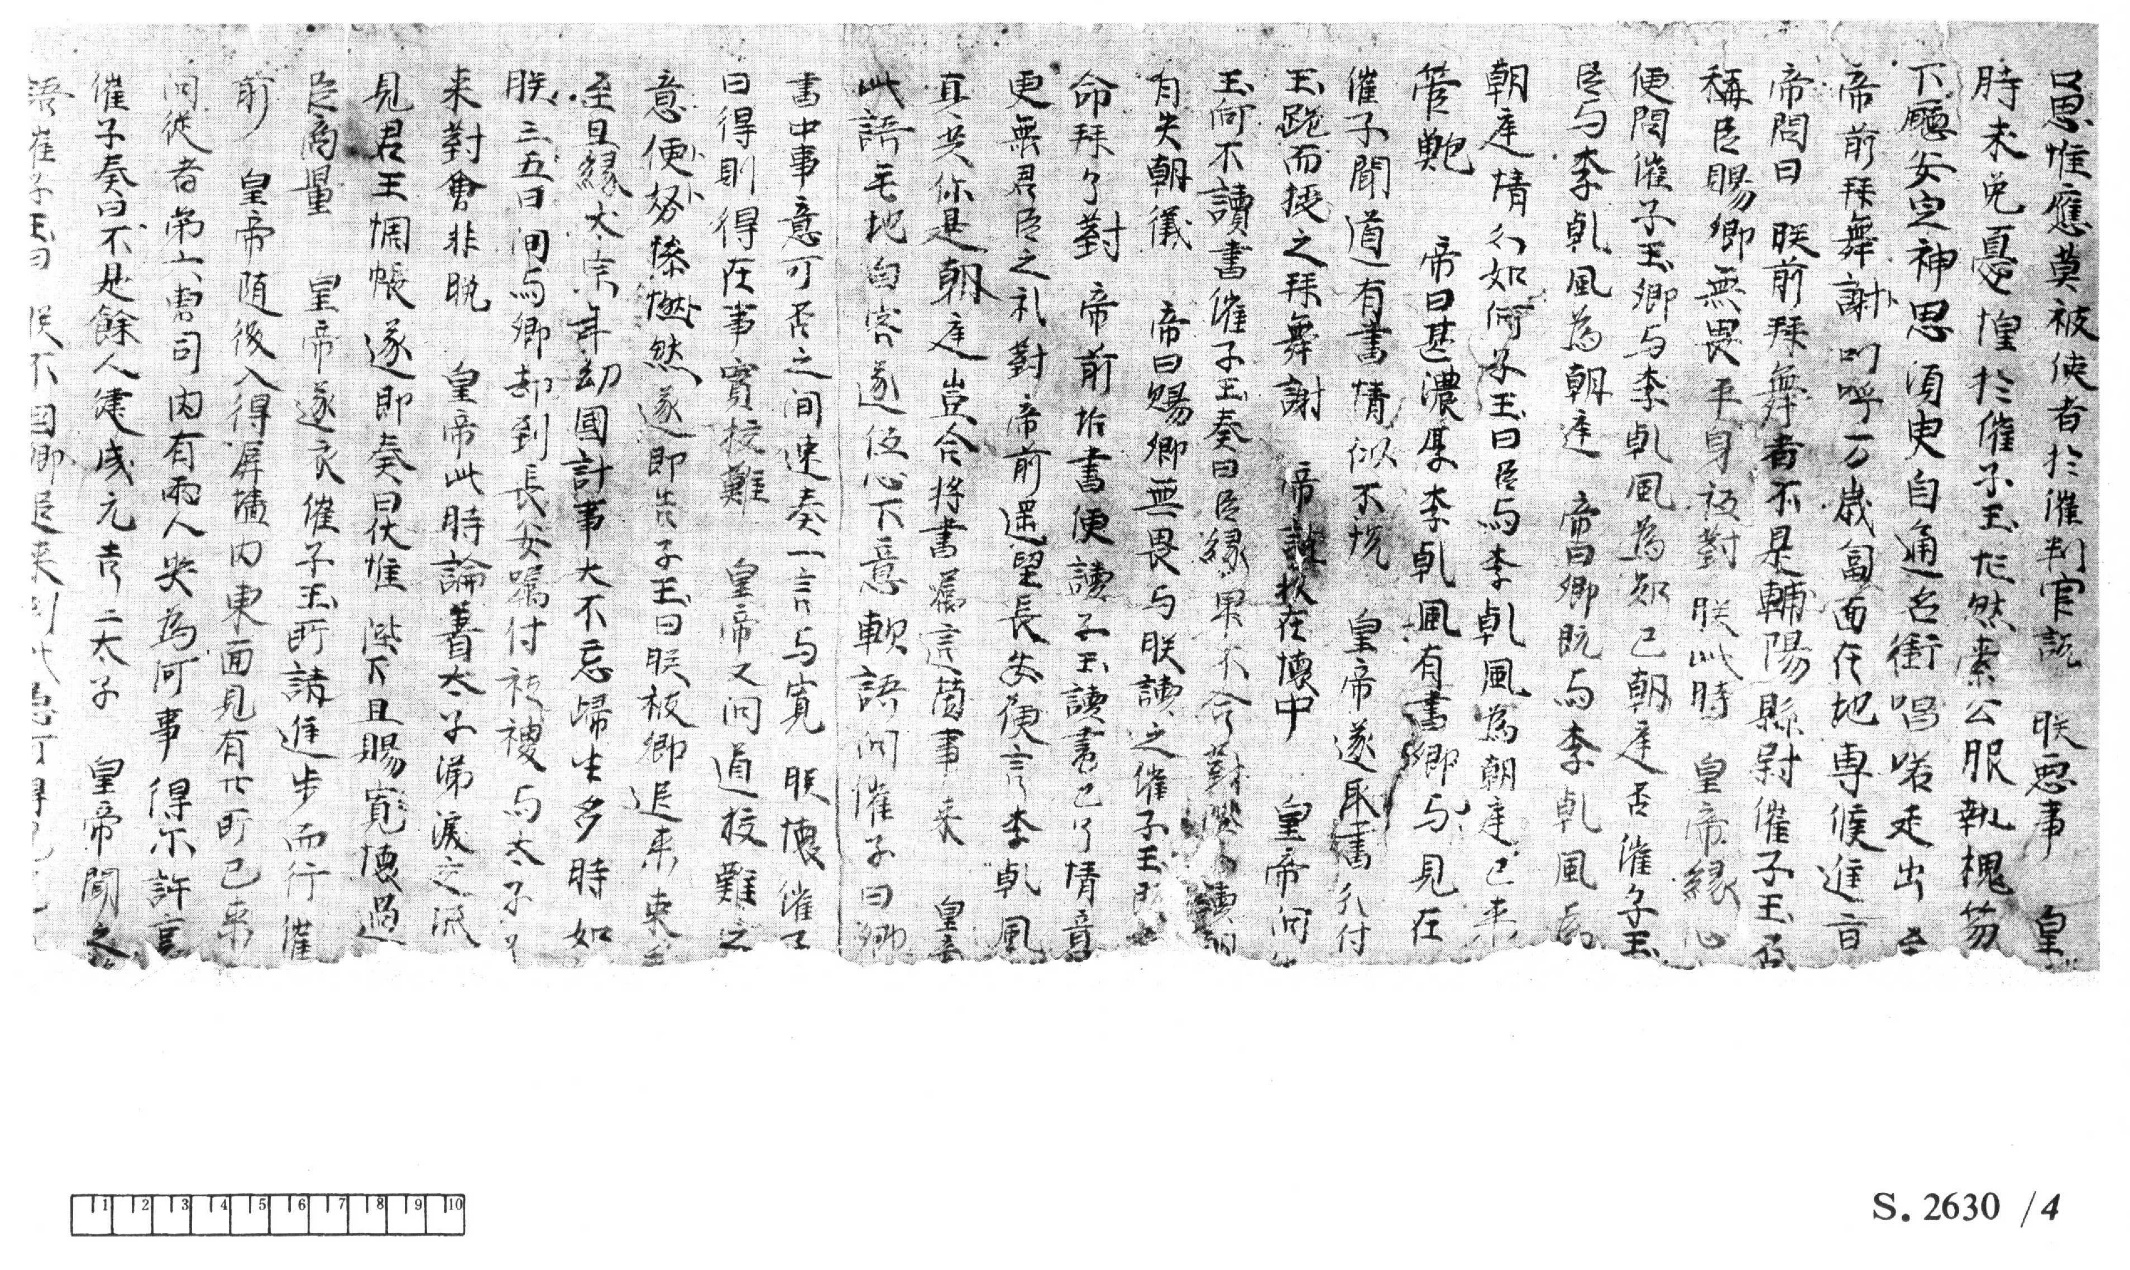 思惟應莫被使者於催判官說 朕惡事 皇
時未免憂惶於催子玉忙然索公服執槐笏
下廳安定神思須臾自通名銜唱喏走出
帝前拜舞謝叫呼万歲匐面在地専候進旨
帝問曰 朕前拜舞者不是輔陽縣尉催子玉否
稱臣賜卿無畏平身祗對 朕此時 皇帝緣心
便問催子玉卿与李乹風為知己朝庭否催子玉
臣与李乹風為朝庭 帝曰卿既与李乹風為
朝庭情分如何子玉曰臣与李乹風為朝庭已来
管鮑 帝曰甚濃厚李乹風有書卿与見在
催子聞道有書情似不悅 皇帝遂取書分付
玉跪而授之拜舞謝 帝訖收在懷中 皇帝問
玉何不讀書催子玉奏曰臣緣卑不合對
有失朝儀 帝曰賜卿無畏与朕讀之催子玉既
命拜了對 帝前拆書便讀子玉讀書已了情意
更無君臣之礼對 帝前遥望長安便言李乹風
真共你是朝庭豈合将書囑這箇事来 皇帝
此語毛地自容遂迃位心下意軟語問催子曰卿
書中事意可否之間速奏一言与寬 朕懷催子
曰得則得在事實校難 皇帝又問道校難之
意便努慘愀然遂即告子玉曰朕被卿追来束手
至且緣太宗年幼國計事大不忘歸生多時如
朕三五日間与卿却到長安囑付社禝与太子了
来對會非晚 皇帝此時論著太子涕淚交流
見君王惆悵遂即奏曰伏惟 陛下且賜寬懷過
臣商量 皇帝遂衣催子玉所請進步而行催
前 皇帝随後入得屏墻内東面見有廿所已来
問從者弟六曹司内有兩人哭為何事 得尔許言
催子奏曰不是餘人建成元吉二太子 皇帝聞之
語催子玉曰 朕不因卿追来到此憑何得見
S. 2630 /4
1 2 3 4 5 6 7 8 9 10